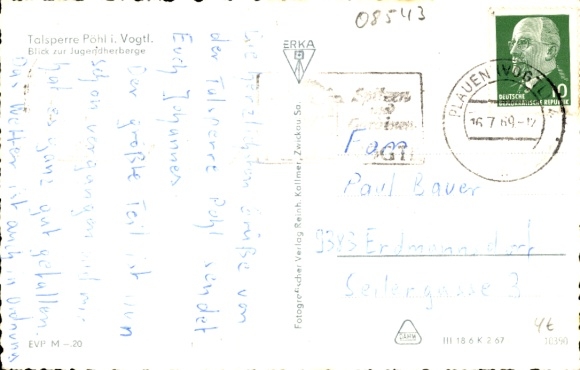 08543
Talsperre Pöhl i. Vogtl.
Blick zur Jugendherberge
Die herzlichsten Grüße von
der Talsperre Pöhl sendet
Euch Johannes.
Der größte Teil ist nun
schon vergangen und mir
hat es ganz gut gefallen.
Das Wetter ist auch in Ordnung
EVP M -.20
ERKA
Fotografischer Verlag Reinh. Kallmer, Zwickau Sa.
PLAUEN (VOGTL)
16.7.69-12
DEUTSCHE
DEMOKRATISCHE REPUBLIK
10
Fam
Paul Bauer
9383 Erdmannsdorf
Seilergasse 3
4t
III 18 6 K 2 67